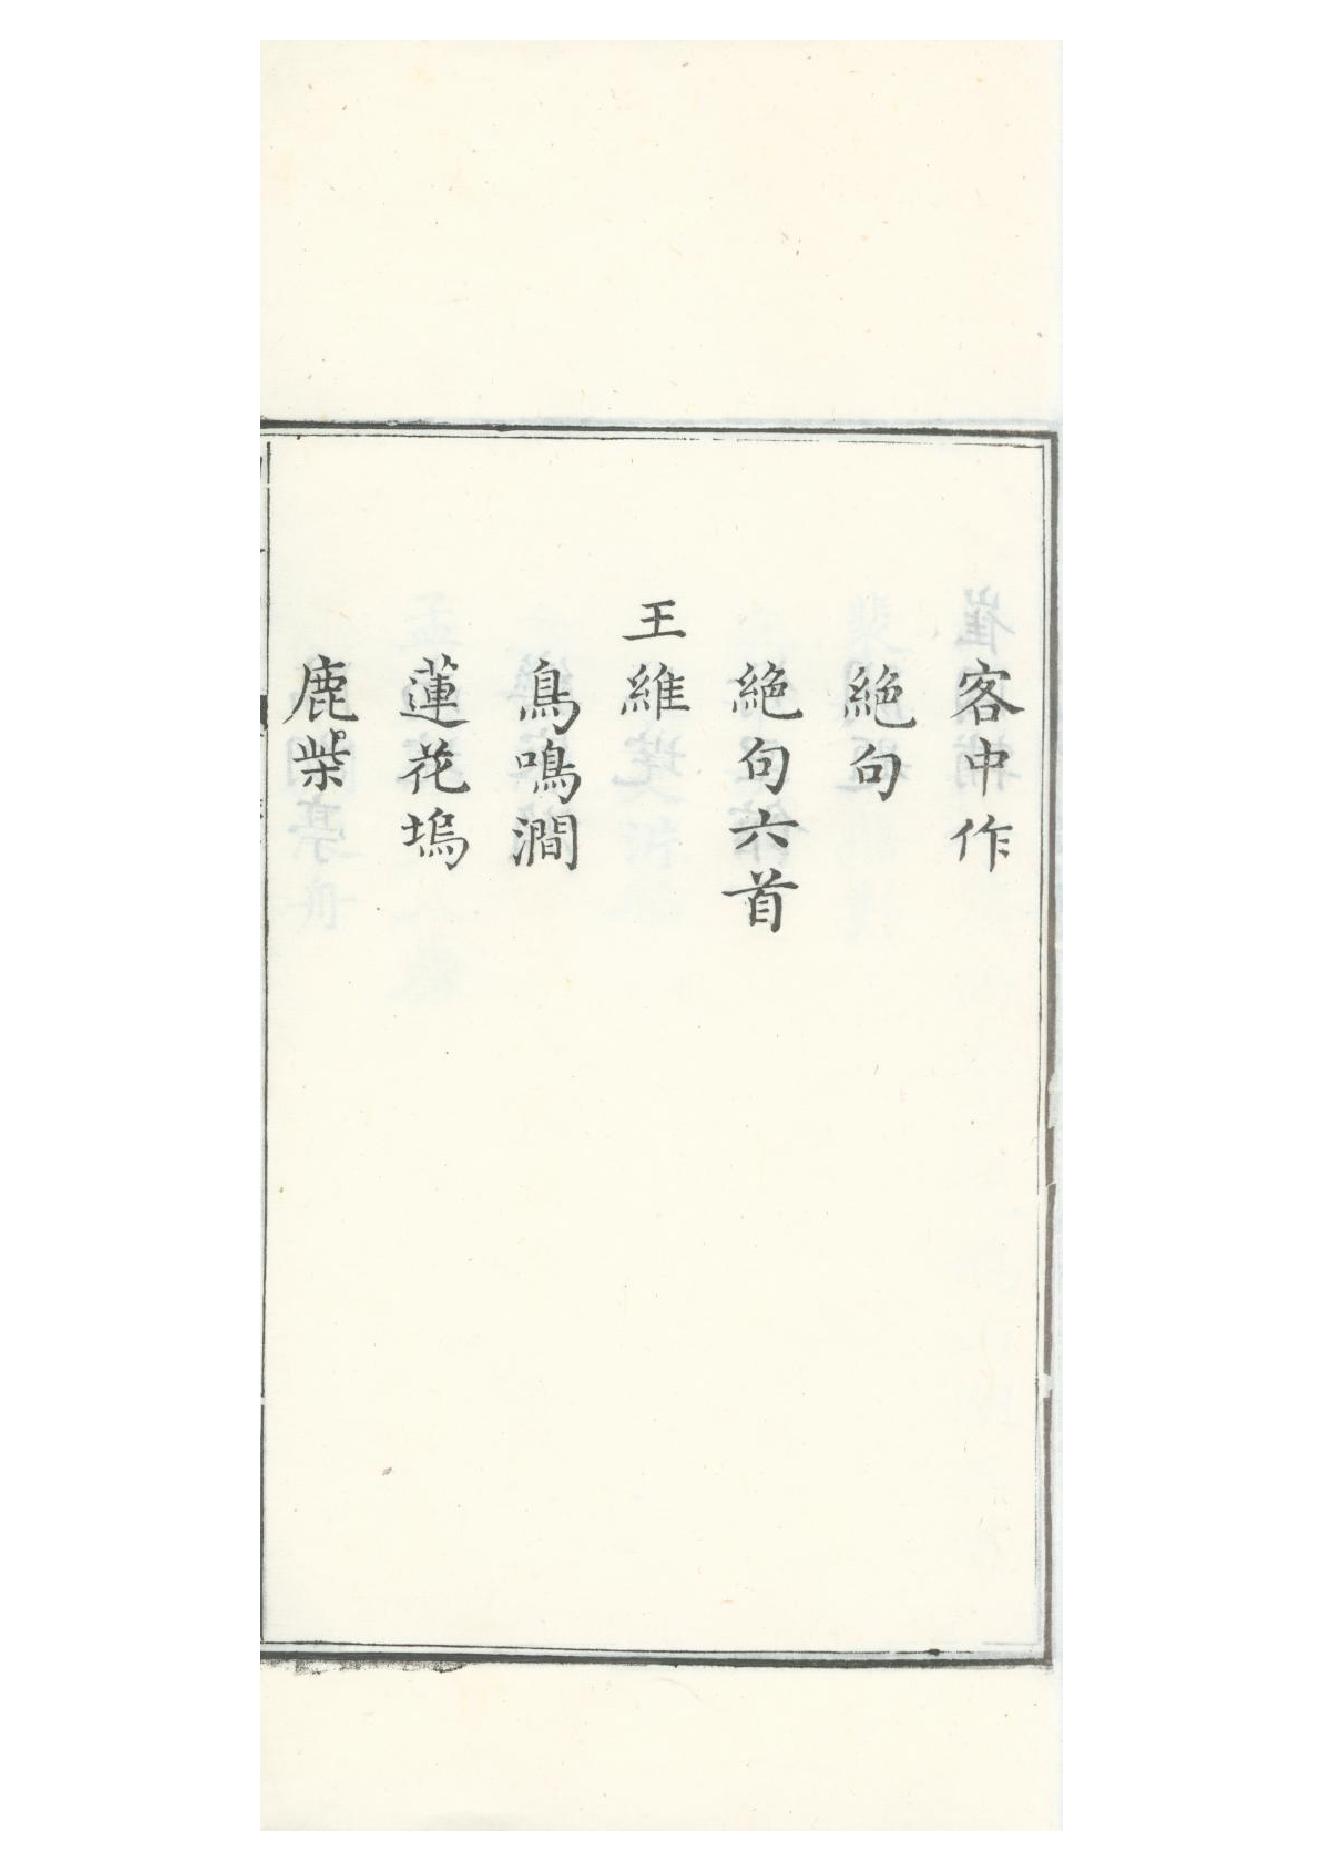 客中作
絶句
絶句六首
王維
鳥鳴澗
蓮花塢
鹿柴